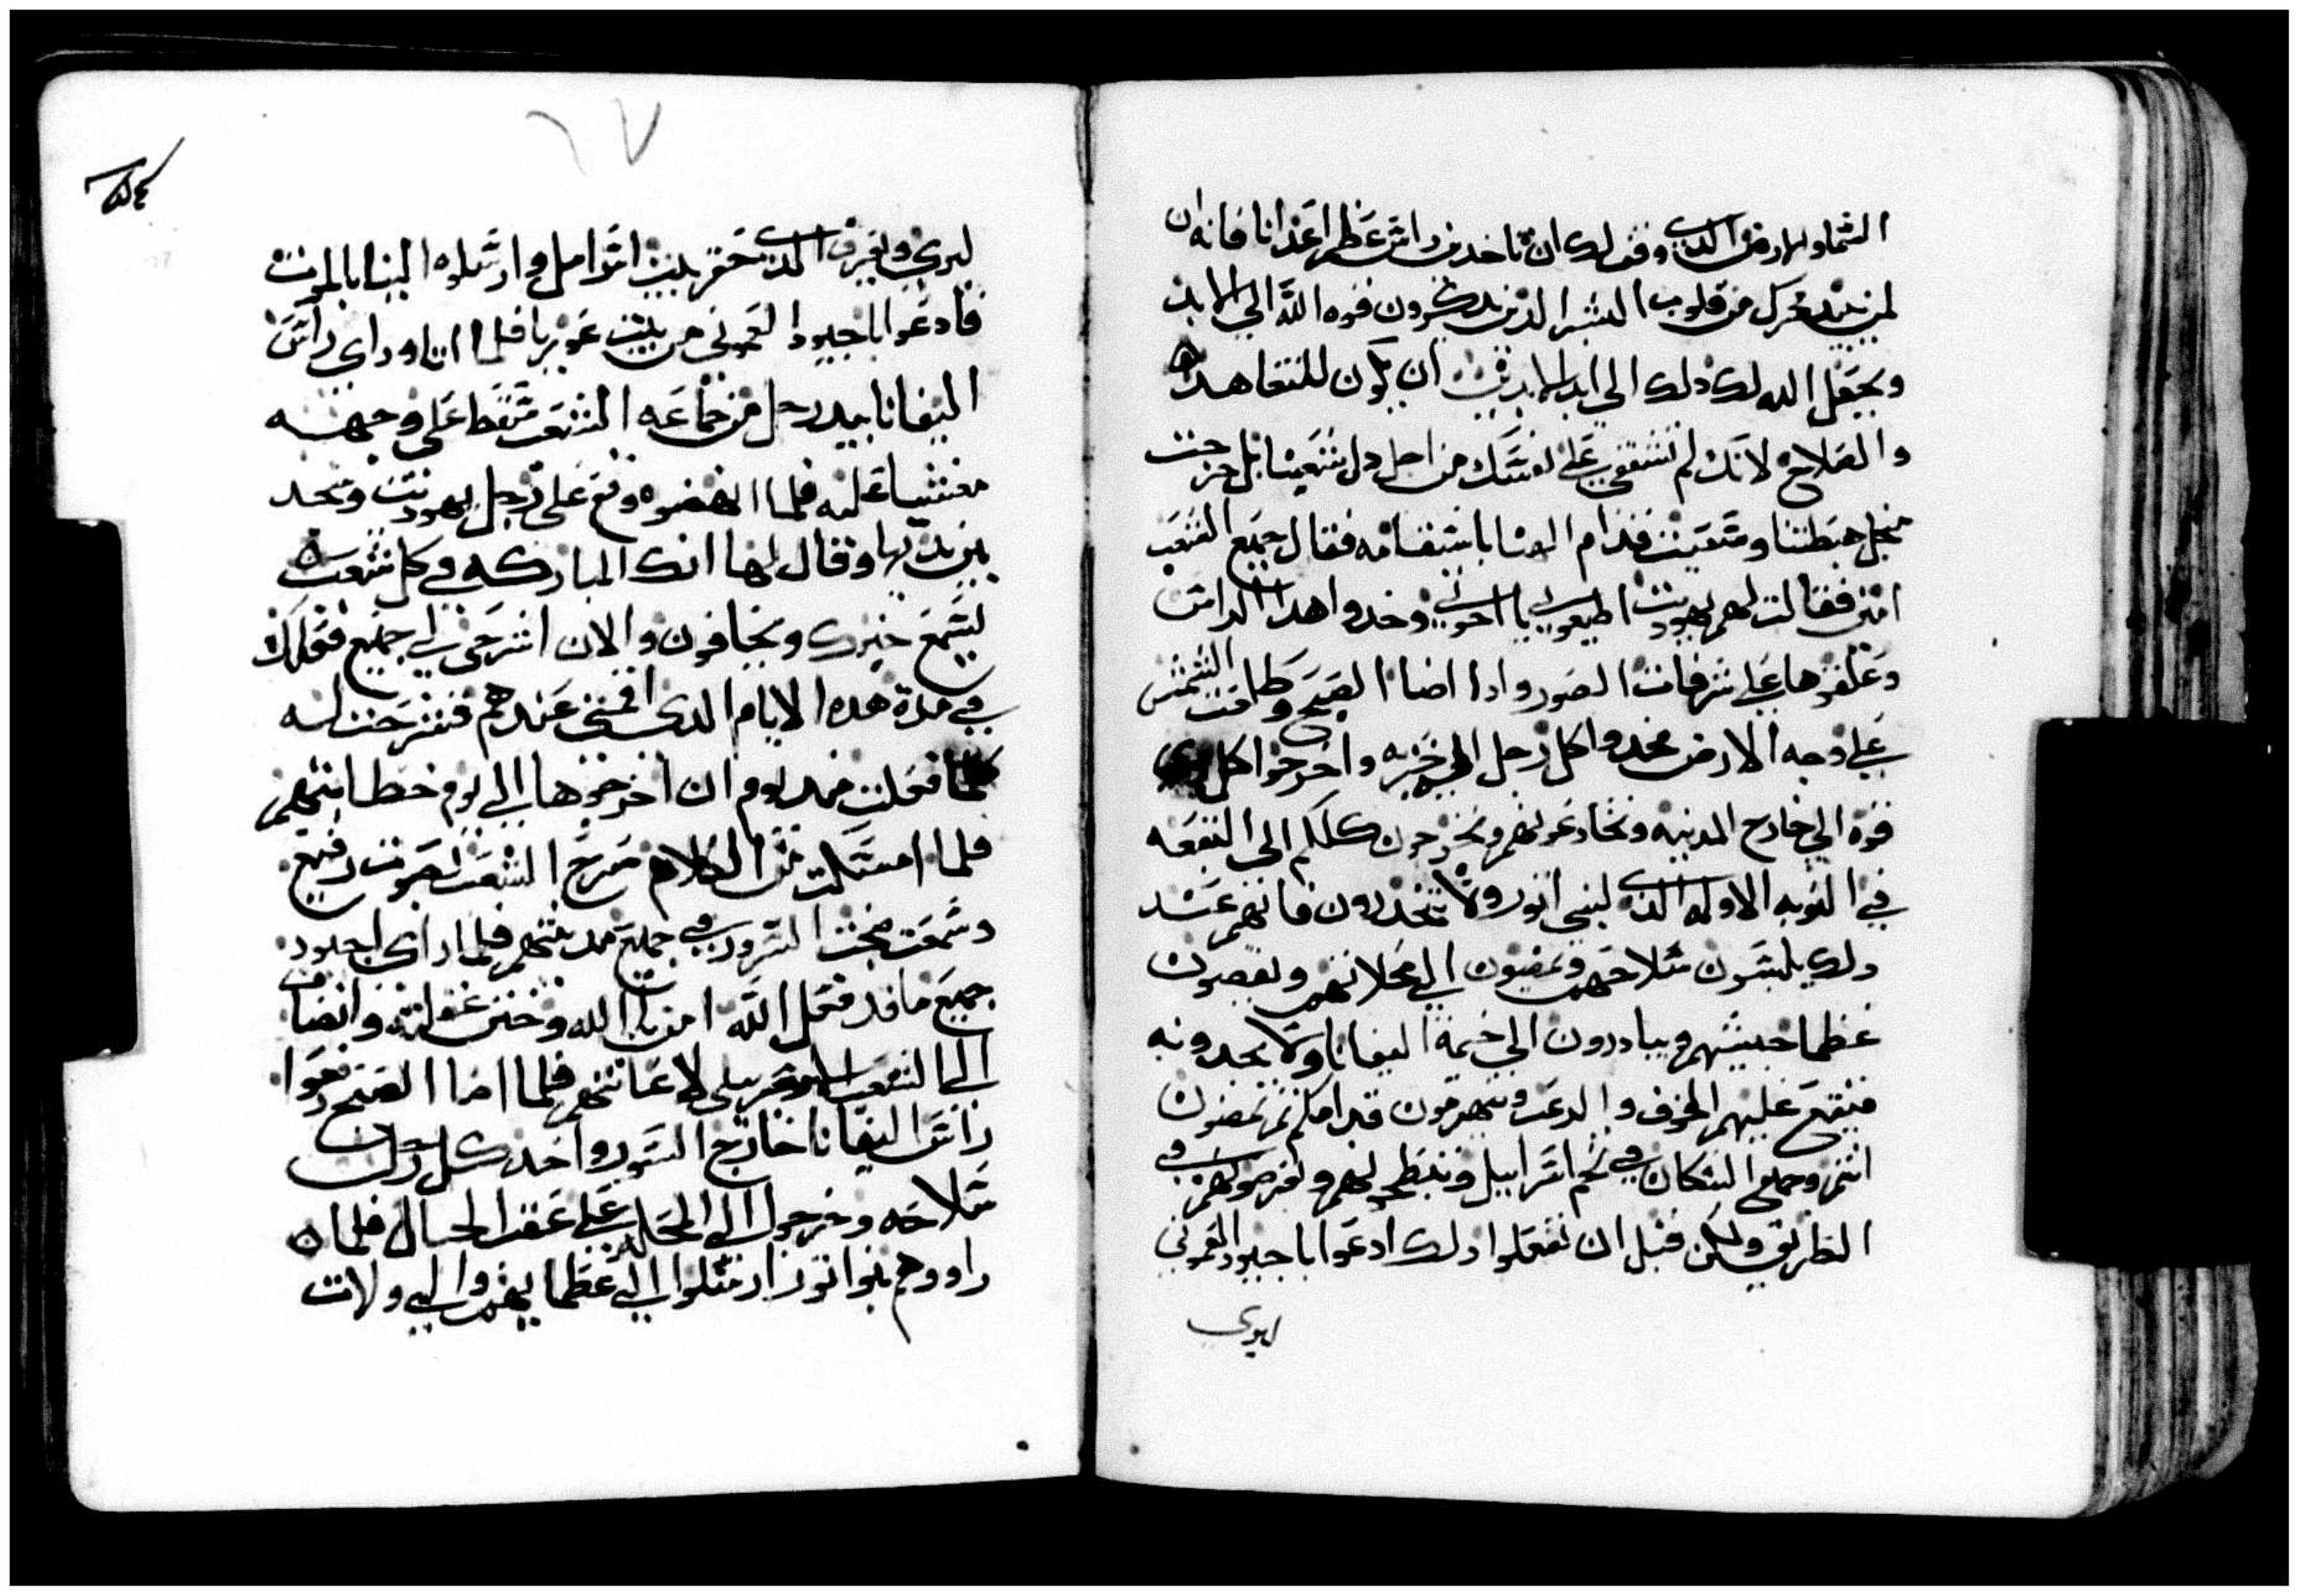 السما والارض الدي وفق لك ان تاخدي راس عظيم اعدانا فانه ان
لم يبيد عزك من قلوب البشر الدين يدكرون قوه الله الي الابد
ويجعل الله لك دلك الي ابد الابدين ان يكون للتعاهد
والصلاح لانك لم تشفقي علي نفسك من اجل دل شعبنا بل خرجت
منجل هبطتنا وسعيت قدام الهنا باستقامه فقال جميع الشعب
امين فقالت لهم يهوديت اطيعوني يا اخوتي وخدوا هدا الراس
وعلقوها علي شرفات الصور وادا اضا الصبح وطلعت الشمس
علي وجه الارض فخدوا كل رجل الي حربه واخرجوا كل دي
قوه الي خارج المدينه وتخادعونهم وتخرجون كلكم الي البقعه
في النوبه الاوله الدي لبني اتور ولا تنحدرون فانهم عند
دلك يلبسون سلاحهم ويمضون الي محلاتهم ويقصدون
عظما جيشهم ويبادرون الي خيمة اليفانا ولا يجدونه
فيقع عليهم الخوف والرعب وينهزمون قدامكم ثم تمضون
انتم وجميع السكان في تخم اسراييل وتبطحونهم وتفرضونهم في
الطريق ولكن قبل ان تفعلوا دلك ادعوا باجيود العموني
ليري
٦٧
ليري ويعرف الدي حقر ببيت اسراييل وارسلوه الينا بالموت
فادعوا باجيود العموني من بيت عوزيا فلما اتا وراي راس
اليفانا بيد رجل من جماعه الشعب سقط علي وجهه
مغشيا عليه فلما انهضوه وقع علي رجل يهوديت وسجد
بين يديها وقال لها انك المباركه في كل شعب
ليسمع خبرك ويخافون والان اشرحي لي جميع فعلك
في مدة هده الايام الدي اقمتي عندهم فشرحت له
كلما فعلت مند يوم ان اخرجوها الي يوم خطابتهم
فلما امسكت من الكلام صرخ الشعب بصوت رفيع
وسمعت ضجت السرور في جميع مدينتهم فلما راي اجيود
جميع ما قد فعل الله امن بالله وختن غرلته وانضاف
الي الشعب الاسراييلي الي عاتهم فلما اضا الصبح رفعوا
راس اليفانا خارج السور واخد كل رجل
سلاحه وخرجوا الي المحله علي عقب الجبال فلما
راووهم بنوا اتور ارسلوا الي عظمايهم والي ولات